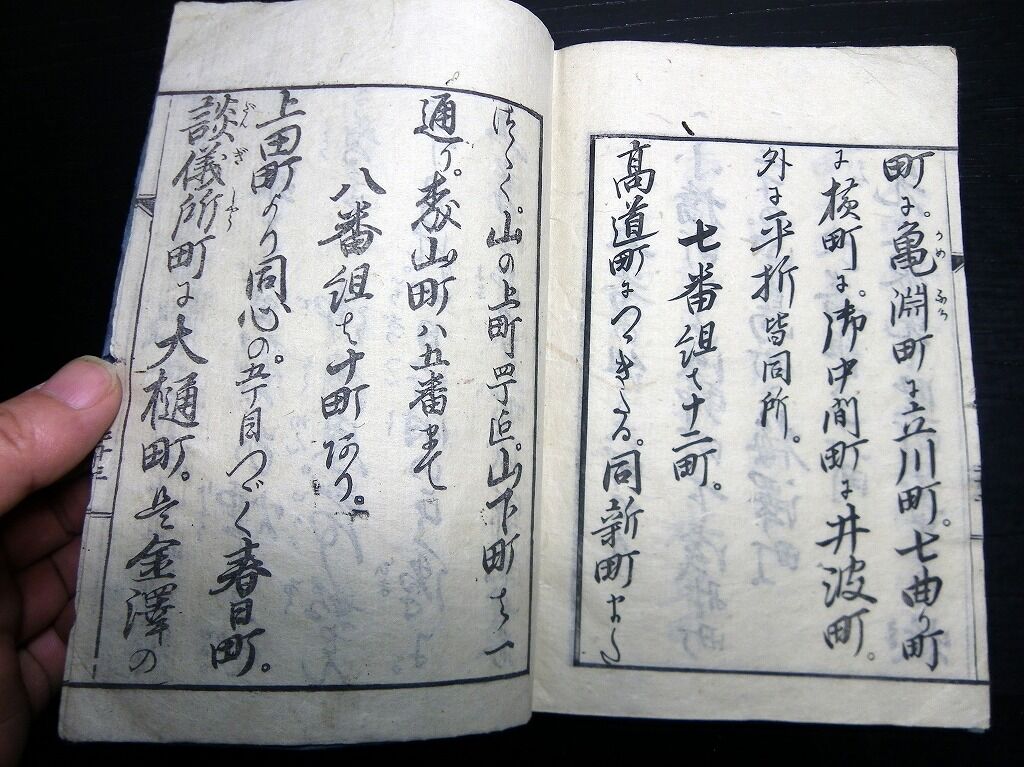 町に。亀淵町に立川町。七曲り町
に横町に。御中間町に井波町。
外に平折皆同所。
七番組て十二町。
高道町につきたる。同新町また
つゝく。山の上町四丁迄。山下町は一
通り。森山町ハ五番まて
八番組は十町あり。
上田町より同心の。五丁目つゞく春日町。
談儀所町に大樋町。是金澤の